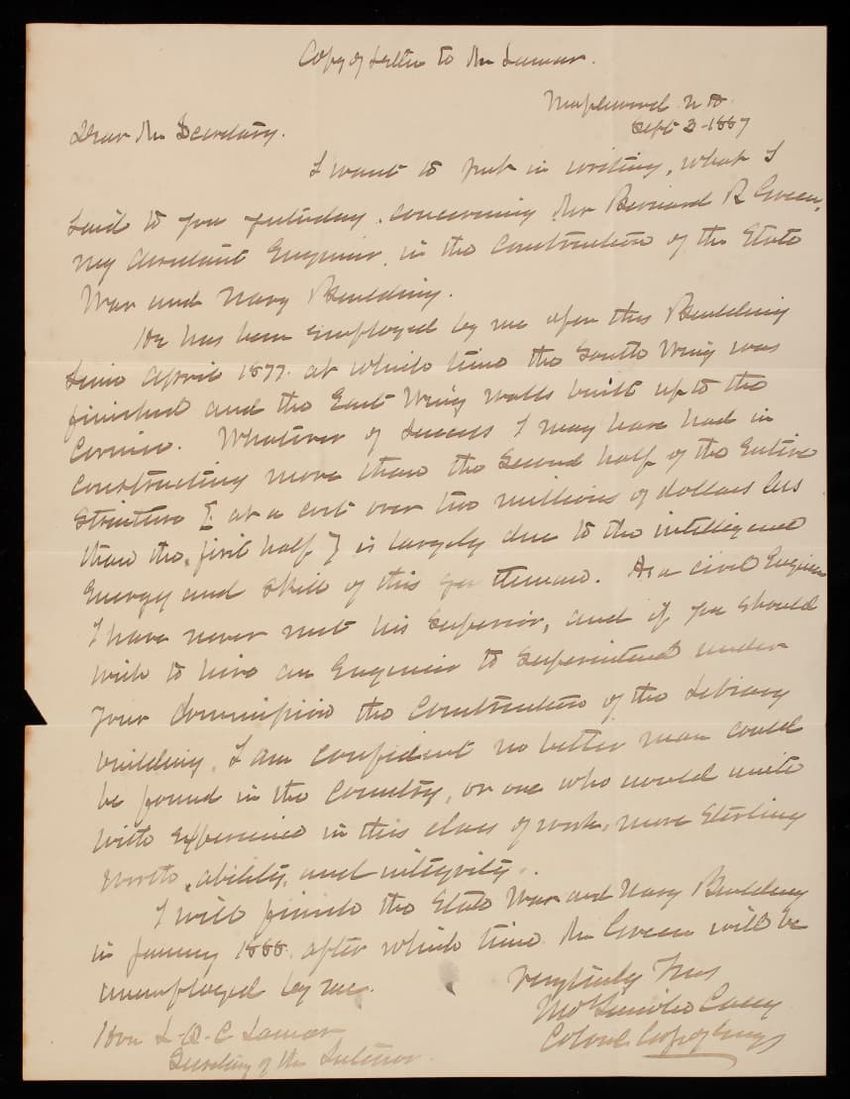 Copy of Letter to Mr Lamar.
Maplewood N H.
Sept 3-1887
Dear Mr Secretary.
I want to put in writing, what I
said to you yesterday, concerning Mr Bernard R Green,
my assistant Engineer, in the Construction of the State
War and Navy Building.
He has been employed by me upon this Building
since April 1877. at which time the South Wing was
finished and the East Wing walls built up to the
Cornice. Whatever of success I may have had in
constructing more than the second half of the Entire
structure [at a cost over two millions of dollars less
than the first half] is largely due to the intelligence
Energy and skill of this gentleman. As a civil Engineer
I have never met his superior, and if you should
wish to hire an Engineer to superintend under
your Commission the Construction of the Library
building, I am confident no better man could
be found in the Country, or one who would unite
with experience in this class of work, more sterling
worth, ability, and integrity.
I will finish the State War and Navy Building
in January 1888. after which time Mr Green will be
unemployed by me.
Very truly Yours
Thos Lincoln Casey
Colonel Corps of Engrs
Hon L. Q. C Lamar
Secretary of the Interior.